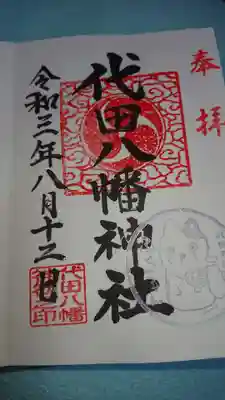 奉拝
代田八幡神社
令和三年八月十二日
代田八幡